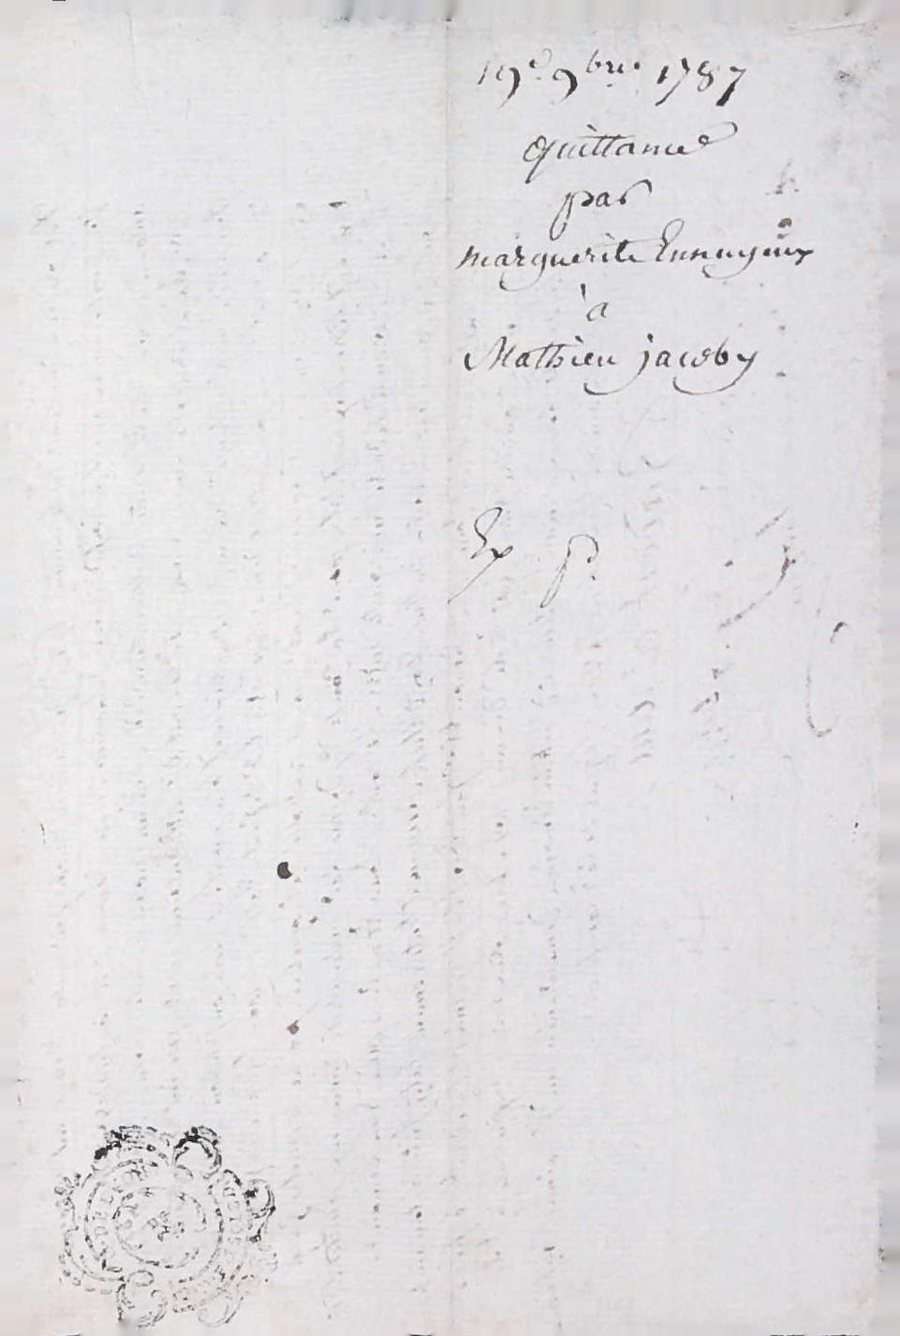 19e 9bre 1787
quittance
par
marguerite Ennuyeux
à
Mathieu jacoby
Ex p.